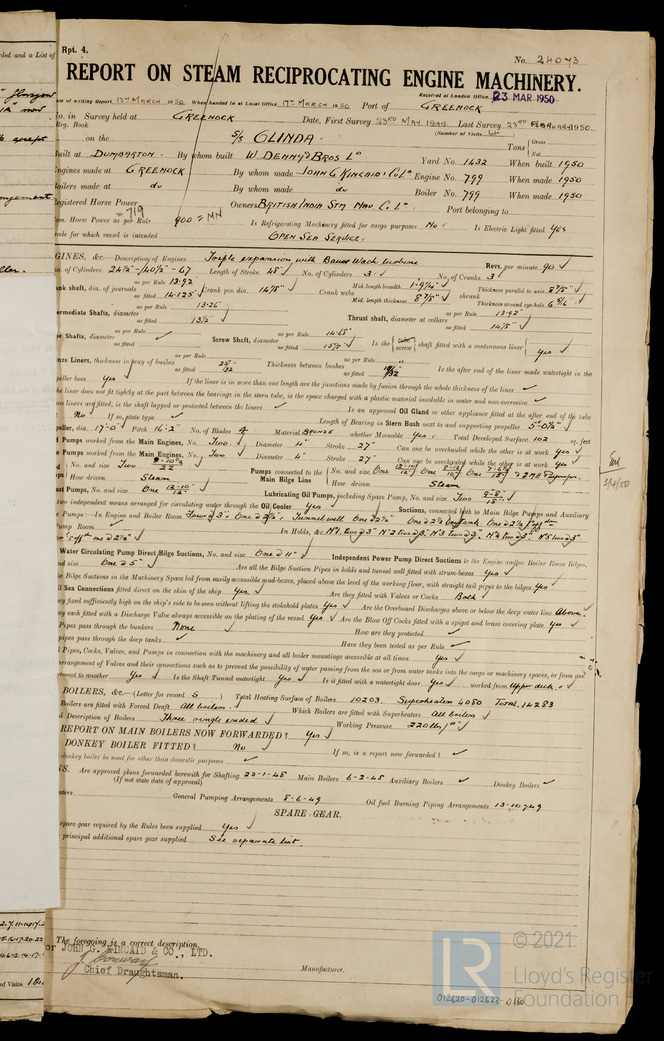 Rpt. 4.
No. 24073
REPORT ON STEAM RECIPROCATING ENGINE MACHINERY.
Received at London Office 23 MAR 1950
ate of writing Report 13th MARCH 1950 When handed in at Local Office 17th MARCH 1950 Port of GREENOCK
o. in Survey held at GREENOCK Date, First Survey 23RD MAY 1949 Last Survey 23RD FEBRUARY 1950
Reg. Book (Number of Visits
on the S/S OLINDA Tons Gross Net
uilt at DUMBARTON By whom built W. DENNY & BROS Ld Yard No. 1432 When built 1950
Engines made at GREENOCK By whom made JOHN G KINCAID & Co Ld Engine No. 799 When made 1950
oilers made at do By whom made do Boiler No. 799 When made 1950
egistered Horse Power Owners BRITISH INDIA STM NAV. Co Ld Port belonging to
om. Horse Power as per Rule = 719 900 = MN Is Refrigerating Machinery fitted for cargo purposes No Is Electric Light fitted Yes
ade for which vessel is intended OPEN SEA SERVICE.
GINES, &c.—Description of Engines Triple expansion with Bauer Wach turbine Revs. per minute 90
ia. of Cylinders 24½"-40½"-67 Length of Stroke 48" No. of Cylinders 3 No. of Cranks 3
ank shaft, dia. of journals as per Rule 13.92 as fitted 14.125 Crank pin dia. 14⅝" Crank webs Mid. length breadth Mid. length thickness 8⅞" shrunk Thickness parallel to axis 8⅞" Thickness around eye-hole
ermediate Shafts, diameter as per Rule 13.26 as fitted 13½" Thrust shaft, diameter at collars as per Rule 13.92 as fitted 14⅝"
e Shafts, diameter as per Rule as fitted Screw Shaft, diameter as per Rule 14.65 as fitted Is the screw shaft fitted with a continuous liner Yes
nze Liners, thickness in way of bushes as per Rule as fitted Thickness between bushes as per Rule as fitted Is the after end of the liner made watertight in the
peller boss Yes If the liner is in more than one length are the junctions made by fusion through the whole thickness of the liner
he liner does not fit tightly at the part between the bearings in the stern tube, is the space charged with a plastic material insoluble in water and non-corrosive
wo liners are fitted, is the shaft lapped or protected between the liners Is an approved Oil Gland or other appliance fitted at the after end of the tube
No If so, state type Length of Bearing in Stern Bush next to and supporting propeller 5'-0½"
peller, dia. 17-0 Pitch 16-2" No. of Blades 4 Material BRONZE whether Moveable Yes Total Developed Surface 102 sq. feet
d Pumps worked from the Main Engines, No. Two Diameter 4" Stroke 27" Can one be overhauled while the other is at work Yes
e Pumps worked from the Main Engines, No. Two Diameter 4" Stroke 27 Can one be overhauled while the other is at work Yes
No. and size Two Pumps connected to the Main Bilge Line No. and size
How driven Steam How driven Steam
ast Pumps, No. and size One 12-10/12 Lubricating Oil Pumps, including Spare Pump, No. and size Two
wo independent means arranged for circulating water through the Oil Cooler Yes Suctions, connected to Main Bilge Pumps and Auxiliary
e Pumps:—In Engine and Boiler Room
Pump Room In Holds, &c. No1 two @ 3" No2 two @ 3" No3 two @ 3" No4 two @ 3" No5 two @ 3"
Water Circulating Pump Direct Bilge Suctions, No. and size One @ 11" Independent Power Pump Direct Suctions to the Engine and/or Boiler Room Bilges,
nd size One @ 5" Are all the Bilge Suction Pipes in holds and tunnel well fitted with strum-boxes Yes
he Bilge Suctions in the Machinery Space led from easily accessible mud-boxes, placed above the level of the working floor, with straight tail pipes to the bilges Yes
ll Sea Connections fitted direct on the skin of the ship Yes Are they fitted with Valves or Cocks Both
ey fixed sufficiently high on the ship's side to be seen without lifting the stokehold plates Yes Are the Overboard Discharges above or below the deep water line Above
ey each fitted with a Discharge Valve always accessible on the plating of the vessel Yes Are the Blow Off Cocks fitted with a spigot and brass covering plate Yes
Pipes pass through the bunkers None How are they protected
pipes pass through the deep tanks Have they been tested as per Rule
l Pipes, Cocks, Valves, and Pumps in connection with the machinery and all boiler mountings accessible at all times Yes
arrangement of Valves and their connections such as to prevent the possibility of water passing from the sea or from water tanks into the cargo or machinery spaces, or from one
ment to another Yes Is the Shaft Tunnel watertight Yes Is it fitted with a watertight door Yes worked from Upper deck
BOILERS, &c.—(Letter for record S) Total Heating Surface of Boilers 10203 Superheaters 4080 Total 14283
oilers are fitted with Forced Draft All boilers Which Boilers are fitted with Superheaters All boilers
d Description of Boilers Three single ended Working Pressure 220 lbs/□"
REPORT ON MAIN BOILERS NOW FORWARDED? Yes
DONKEY BOILER FITTED? No If so, is a report now forwarded?
donkey boiler be used for other than domestic purposes
NS. Are approved plans forwarded herewith for Shafting 23-1-48 Main Boilers 6-2-48 Auxiliary Boilers Donkey Boilers
(If not state date of approval)
aters General Pumping Arrangements 8-6-49 Oil fuel Burning Piping Arrangements 13-10-49
SPARE GEAR.
spare gear required by the Rules been supplied Yes
principal additional spare gear supplied See separate list.
The foregoing is a correct description,
or JOHN G. KINCAID & CO., LTD.
Chief Draughtsman. Manufacturer.
LR © 2021
Lloyd's Register
Foundation
012620-012623-0160